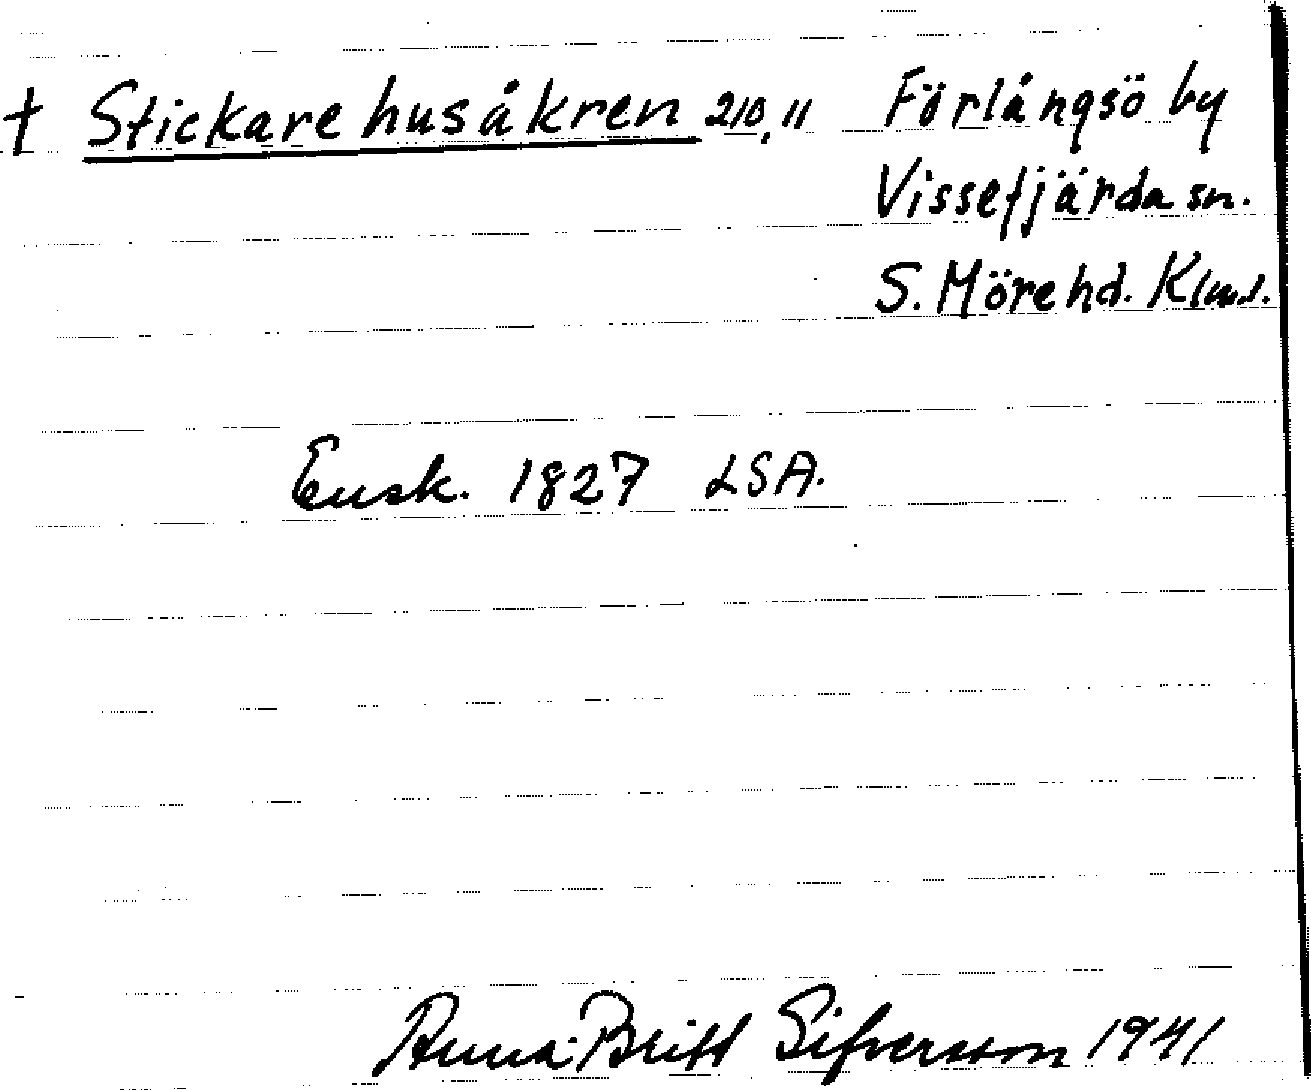 † Stickarehusåkren 210,11 Förlångsö by
Vissefjärda sn.
S. Möre hd. Klm.l.
Ensk. 1827 LSA.
Anna-Britt Sifversson 1941